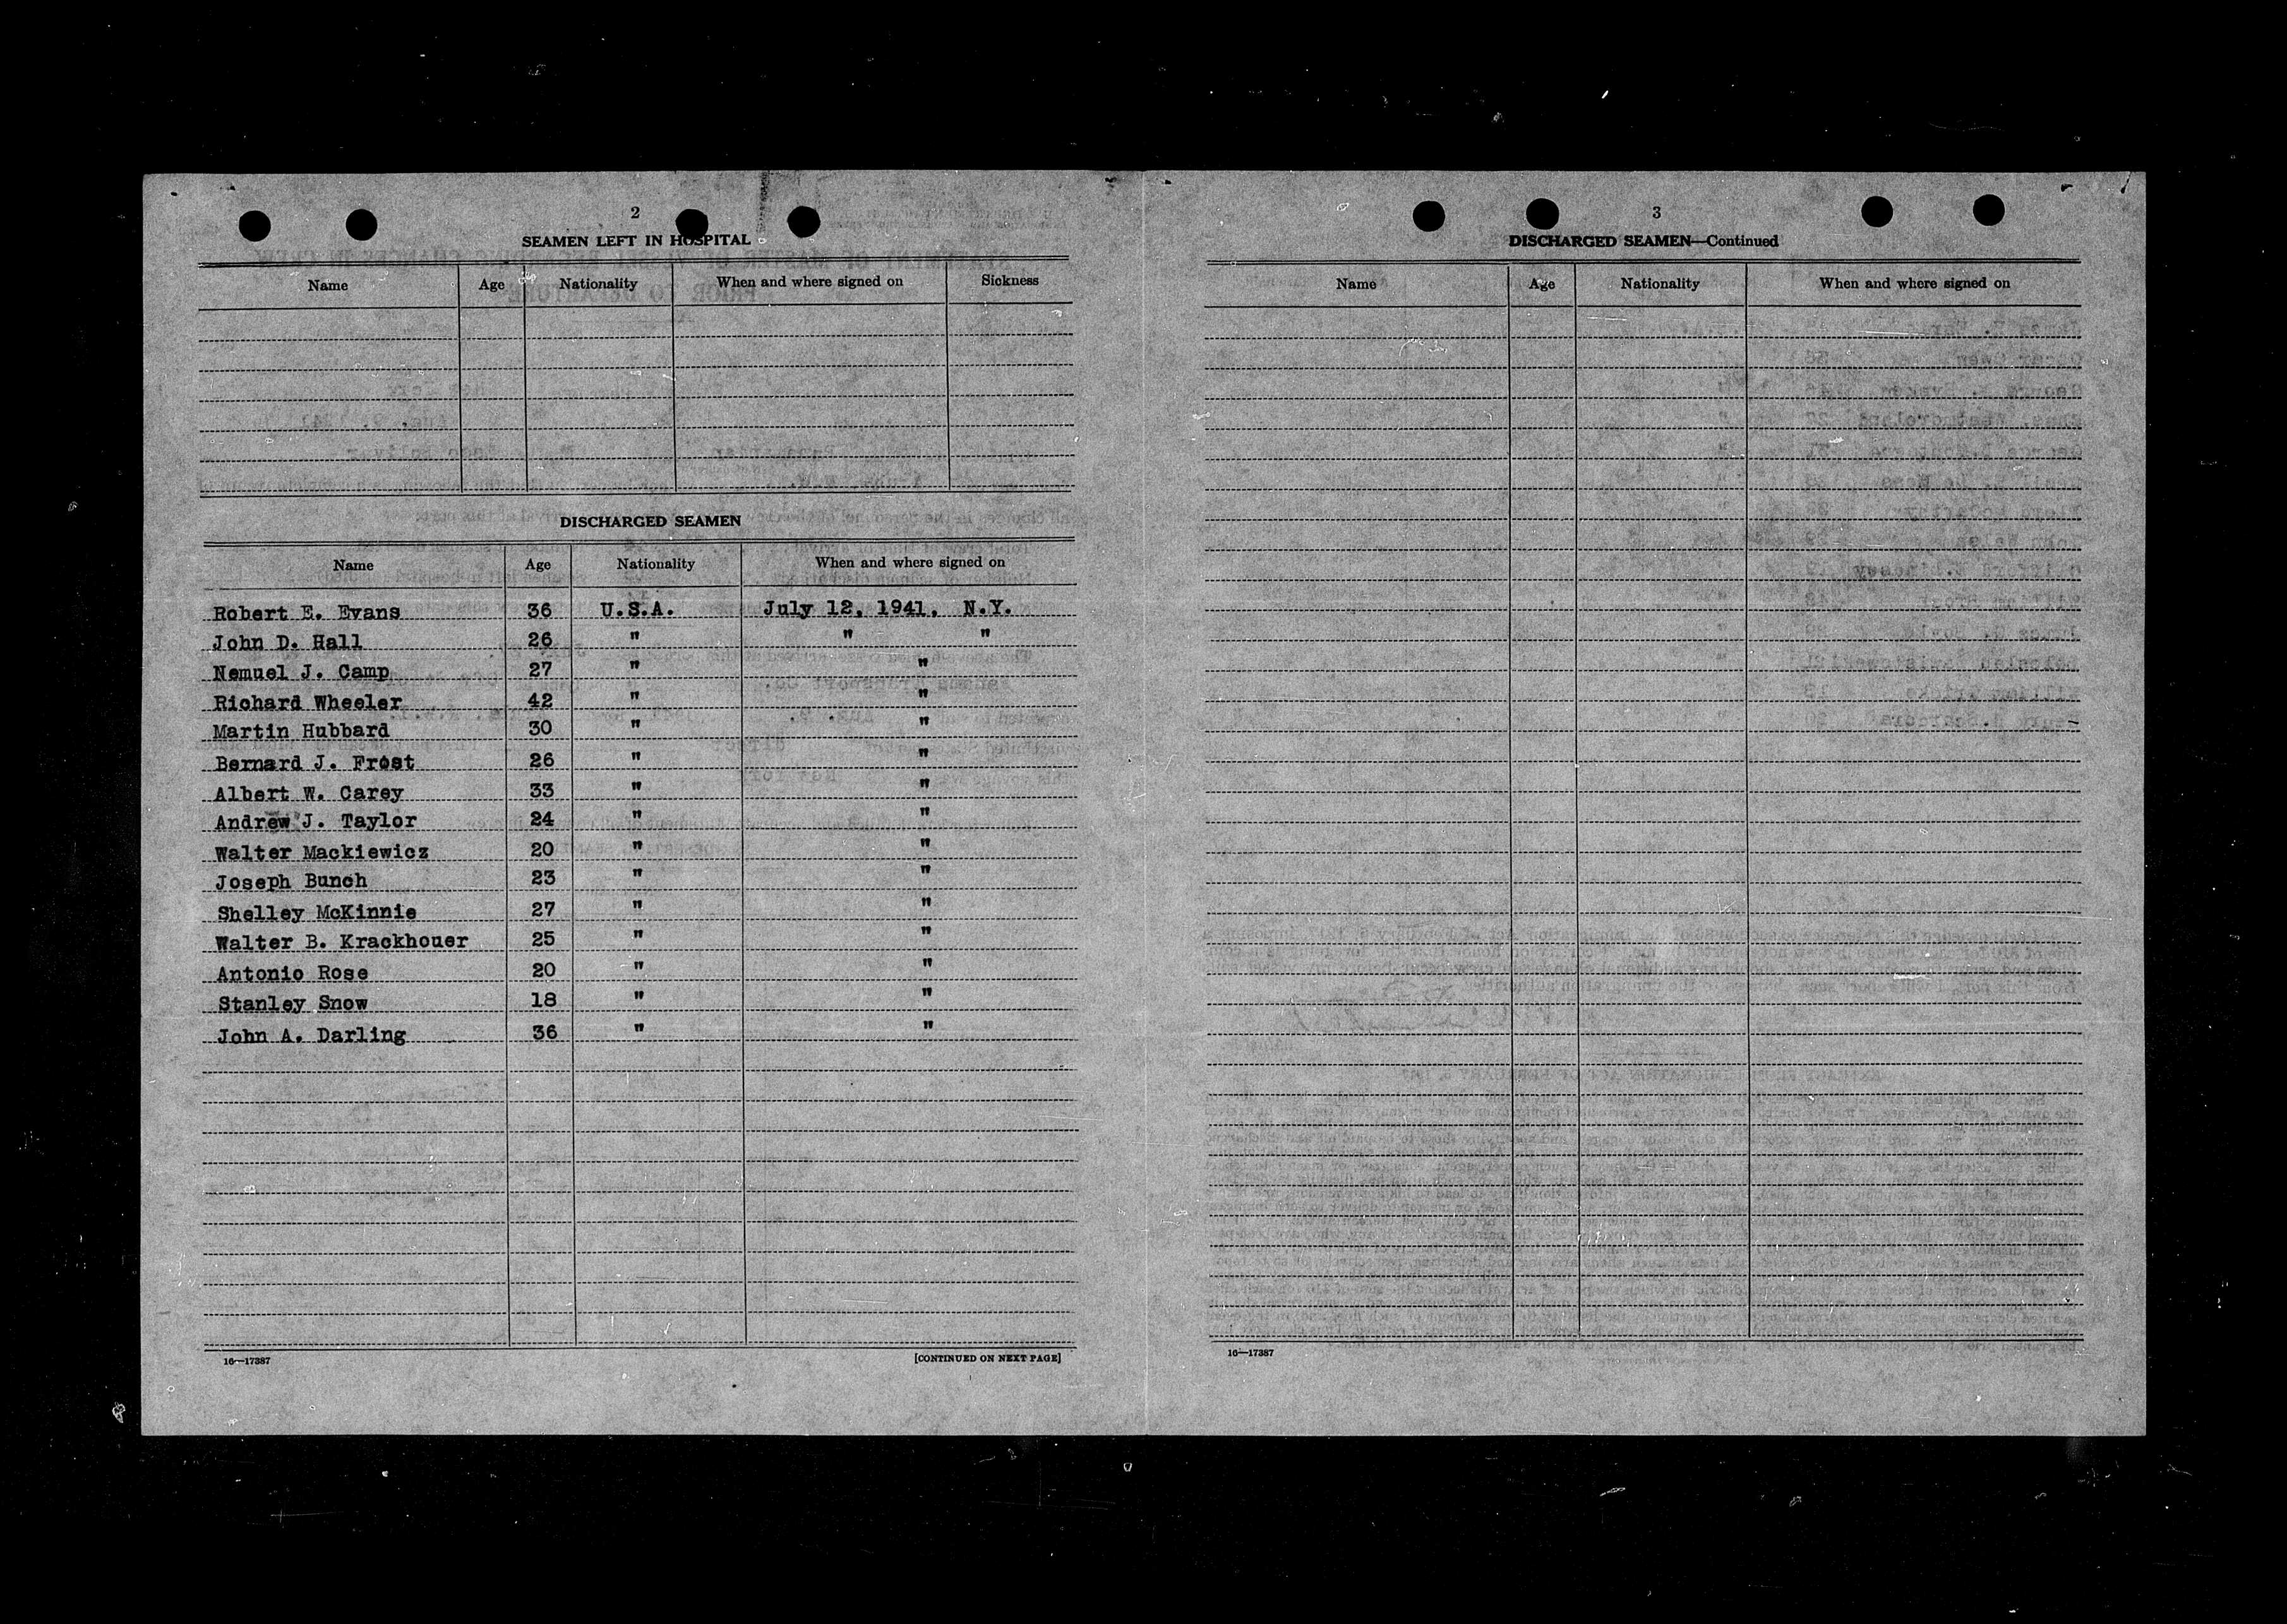 2
SEAMEN LEFT IN HOSPITAL
Name Age Nationality When and where signed on Sickness
DISCHARGED SEAMEN
Name Age Nationality When and where signed on
Robert E. Evans 36 U.S.A. July 12, 1941, N.Y.
John D. Hall 26 " " "
Nemuel J. Camp 27 " "
Richard Wheeler 42 " "
Martin Hubbard 30 " "
Bernard J. Frost 26 " "
Albert W. Carey 33 " "
Andrew J. Taylor 24 " "
Walter Mackiewicz 20 " "
Joseph Bunch 23 " "
Shelley McKinnie 27 " "
Walter B. Krackhouer 25 " "
Antonio Rose 20 " "
Stanley Snow 18 " "
John A. Darling 36 " "
16—17387 [CONTINUED ON NEXT PAGE]
3
DISCHARGED SEAMEN—Continued
Name Age Nationality When and where signed on
16—17387